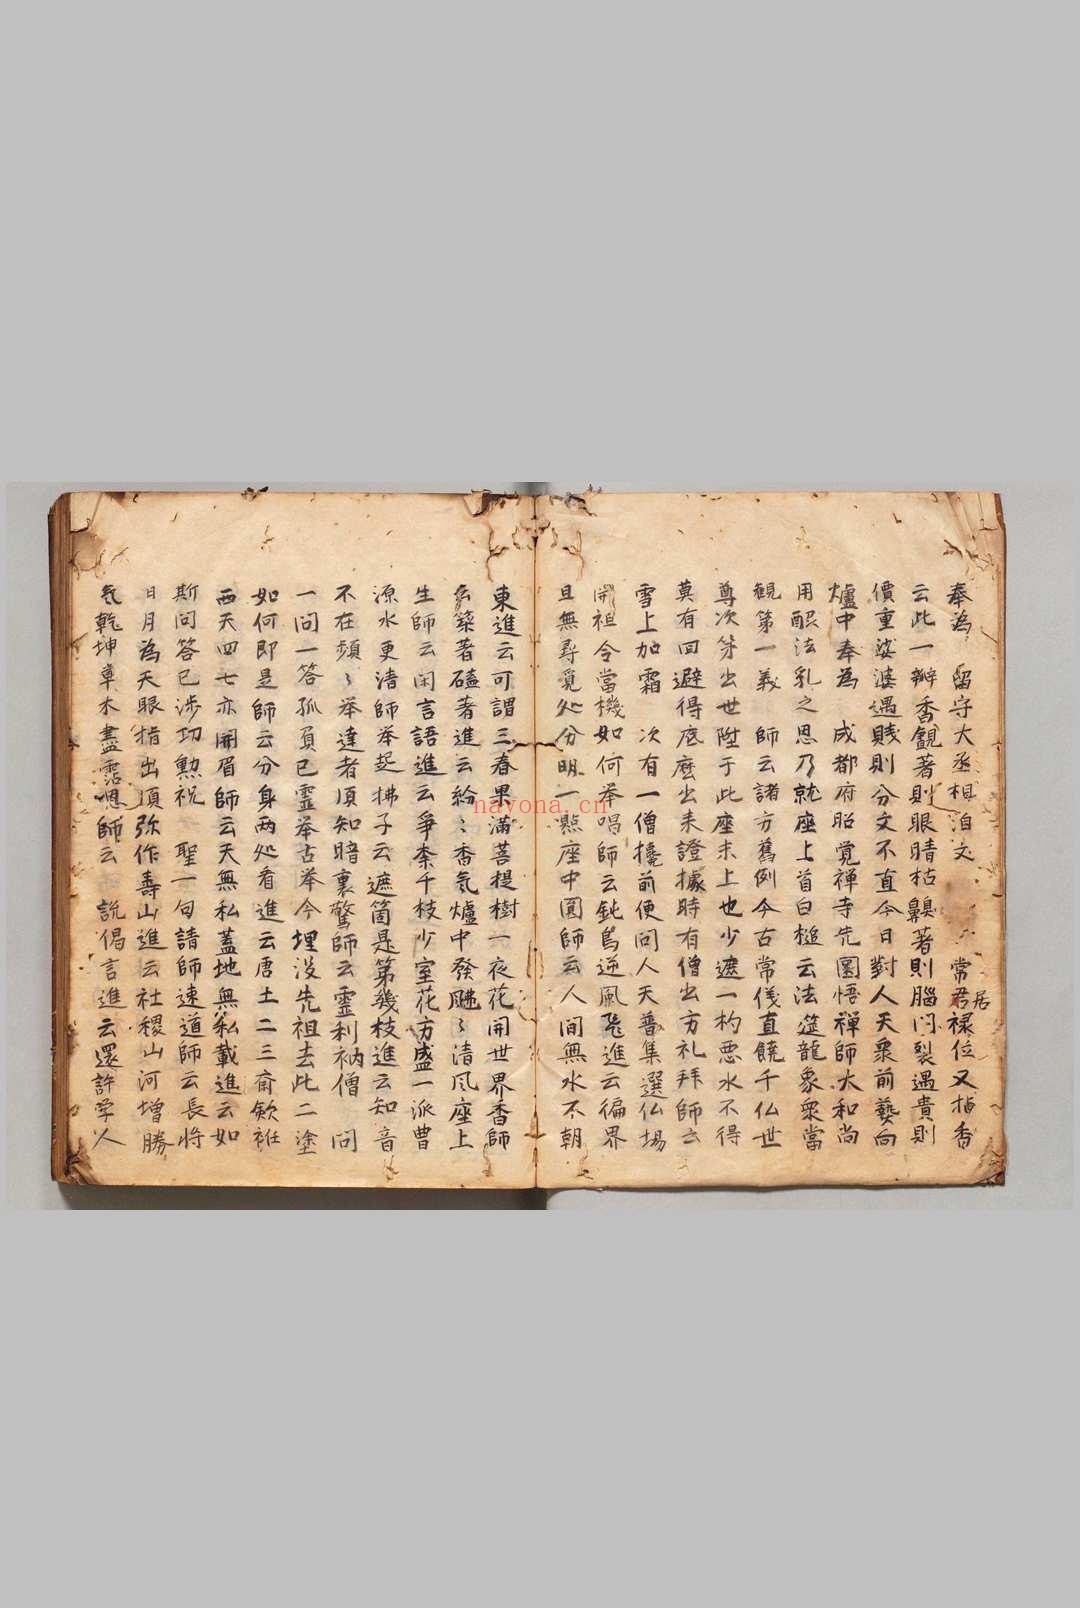 奉為　留守大丞相洎文　常居祿位又拈香
云此一瓣香覷著則眼睛枯齅著則腦門裂遇貴則
價重娑婆遇賤則分文不直今日對人天衆前爇向
爐中奉為　成都府昭覺禅寺先圜悟禅師大和尚
用酬法乳之恩乃就座上首白槌云法筵龍象衆當
観第一義　師云諸方舊例今古常儀直饒千仏世
尊次第出世陞于此座未上也少遮一杓悪水不得
莫有回避得底麼出来證據時有僧出方礼拜師云
雪上加霜　次有一僧攙前便問人天普集選仏場
開祖令當機如何举唱師云鈍鳥逆風飛進云徧界
且無尋覓处分明一點座中圓師云人間無水不朝
東進云可謂三春果滿菩提樹一夜花開世界香師
云築著磕著進云紛〻香気爐中發颾〻清風座上
生師云閑言語進云争柰千枝少室花方盛一派曹
源水更清師举起拂子云遮箇是第幾枝進云知音
不在頻〻举達者須知暗裏驚師云霊利衲僧　問
一問一答孤負已霊举古举今埋没先祖去此二塗
如何即是師云分身两处看進云唐土二三斎欽袵
西天四七亦開眉師云天無私蓋地無私載進云如
斯問答已渉功勲祝　聖一句請師速道師云長将
日月為天眼指出須弥作壽山進云社稷山河増勝
気乾坤草木盡霑恩師云　説偈言進云還許学人
居
nayona.cn